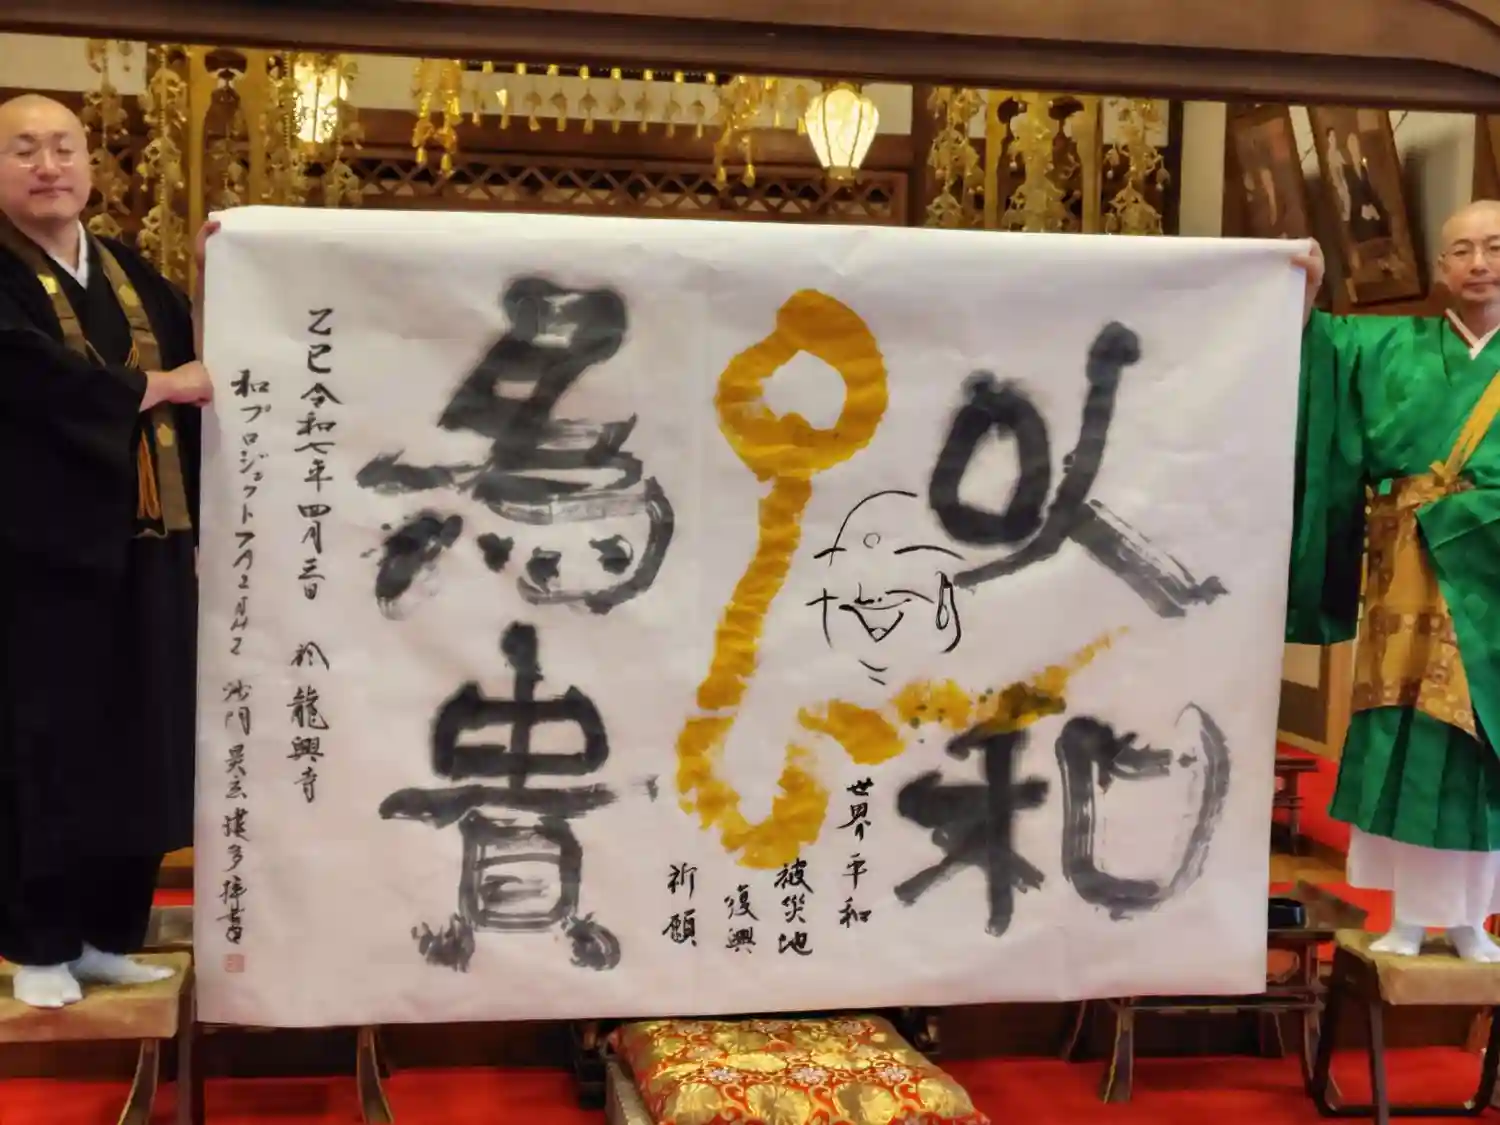 以和
為貴
世界平和
被災地
復興
祈願
乙巳令和七年四月三日 於龍興寺
和プロジェクトTAISHI 沙門
拝書